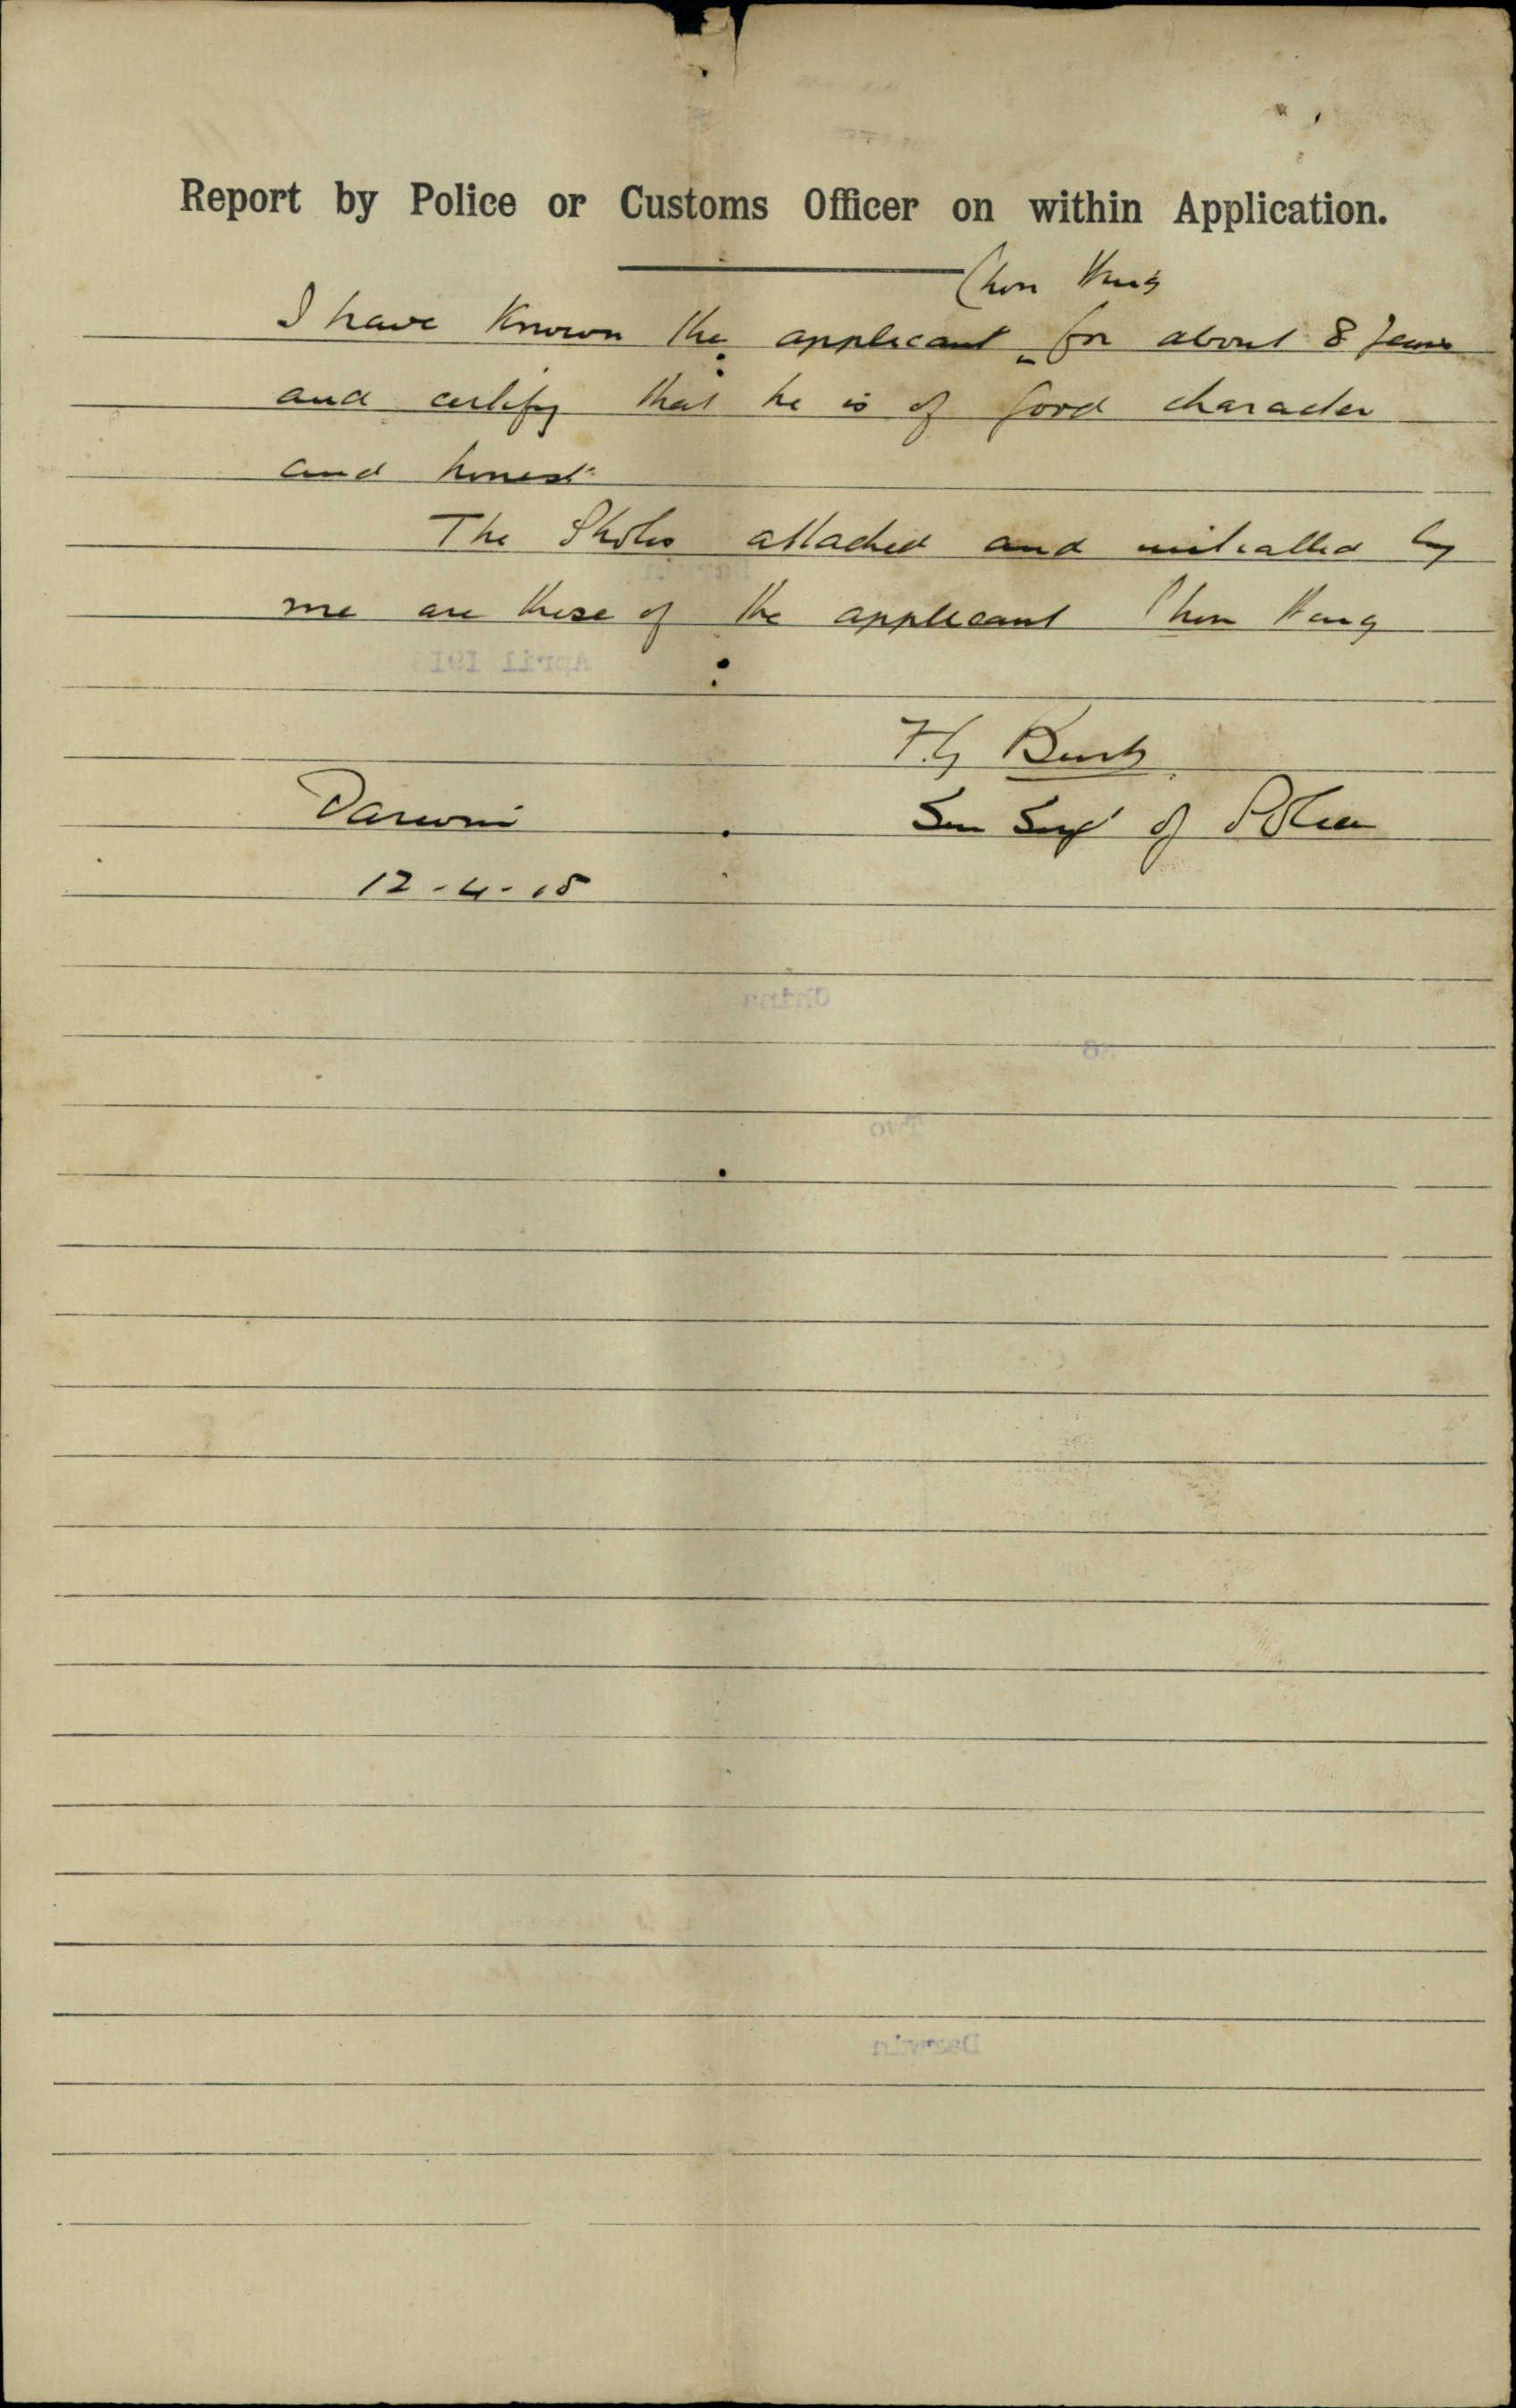 Report by Police or Customs Officer on within Application.
Chon
I have known the applicant for about 8 years
and certify that he is of good character
and honest
The Photos attached and initialled by
me are those of the applicant Chon Hang
of Police
Darwin
12-4-15
April 191
China
Two
Darwin